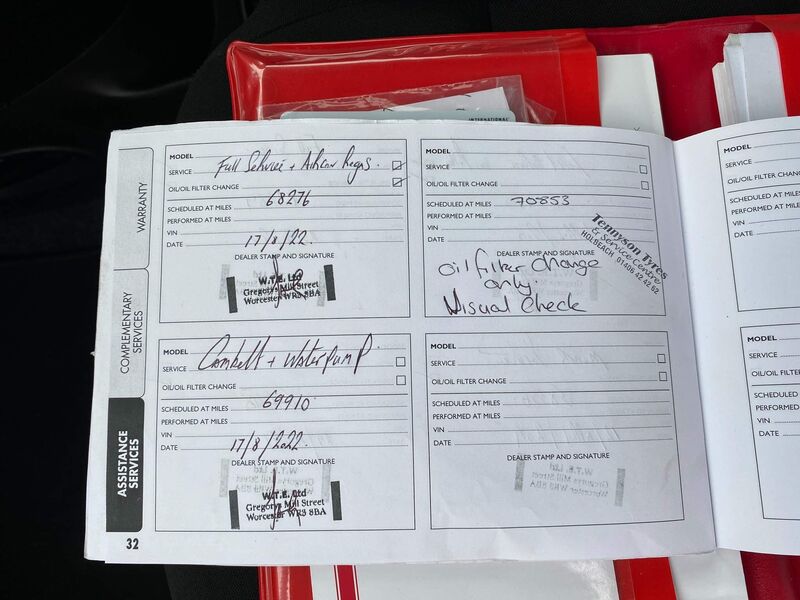 INTERNATIONAL
WARRANTY
COMPLEMENTARY
SERVICES
ASSISTANCE
SERVICES
32
MODEL
SERVICE Full Service + Aircon Regas.
OIL/OIL FILTER CHANGE
SCHEDULED AT MILES 68276
PERFORMED AT MILES
VIN
DATE 17/8/22.
DEALER STAMP AND SIGNATURE
W.T.E. Ltd
Gregorys Mill Street
Worcester WR3 8BA
MODEL
SERVICE Cambelt + Waterpump
OIL/OIL FILTER CHANGE
SCHEDULED AT MILES 69910
PERFORMED AT MILES
VIN
DATE 17/8/2022.
DEALER STAMP AND SIGNATURE
W.T.E. Ltd
Gregorys Mill Street
Worcester WR3 8BA
MODEL
SERVICE
OIL/OIL FILTER CHANGE
SCHEDULED AT MILES 70853
PERFORMED AT MILES
VIN
DATE
DEALER STAMP AND SIGNATURE
Tennyson Tyres
& Service Centre
HOLBEACH 01406 42 42 62
oil filter change
only.
Visual check
MODEL
SERVICE
OIL/OIL FILTER CHANGE
SCHEDULED AT MILES
PERFORMED AT MILES
VIN
DATE
DEALER STAMP AND SIGNATURE
MODEL
SERVICE
OIL/OIL FILTER
SCHEDULED AT
PERFORMED AT
VIN
DATE
MODEL
SERVICE
OIL/OIL FILTER
SCHEDULED
PERFORMED
VIN
DATE